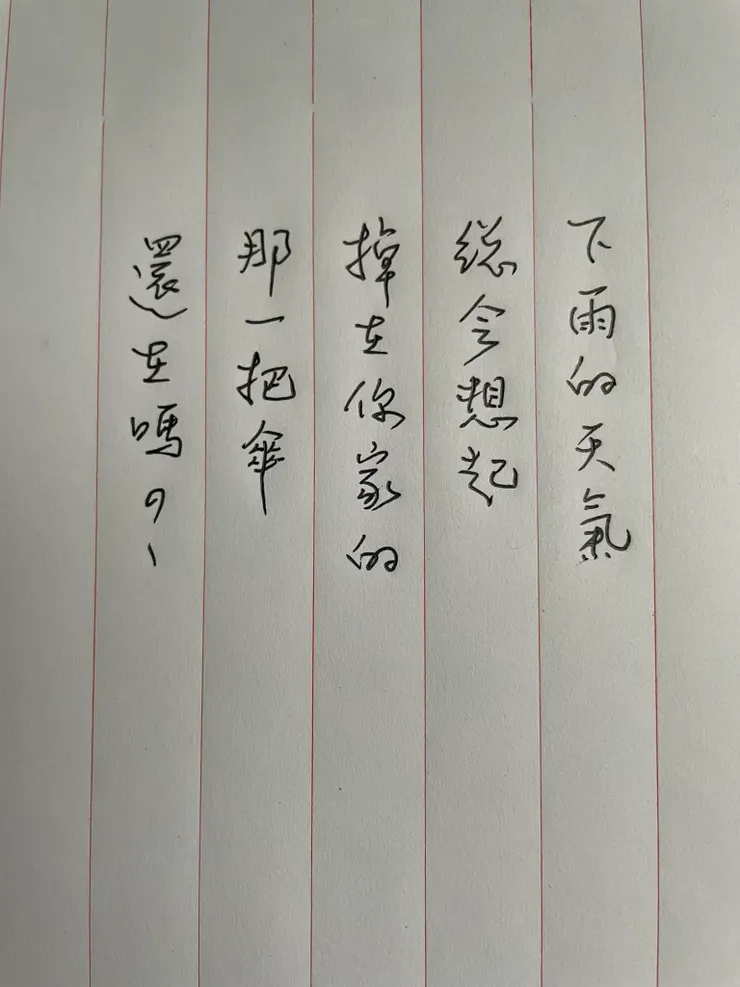 下雨的天氣
總會想起
掉在你家的
那一把傘
還在嗎？